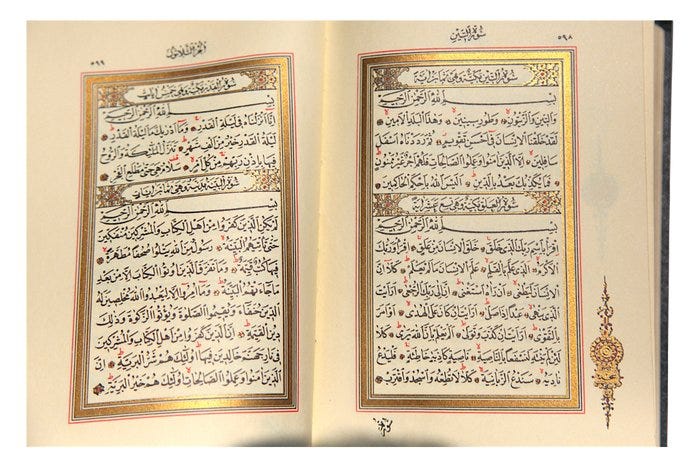 ٥٩٨ سُورَةُ التِّينِ
سُورَةُ التِّينِ مَكِّيَّةٌ وَهِيَ ثَمَانِ اٰيَةٍ
بِسْمِ اللّٰهِ الرَّحْمٰنِ الرَّحِيمِ
وَالتِّينِ وَالزَّيْتُونِ وَطُورِ سِينِينَ وَهٰذَا الْبَلَدِ الْاَمِينِ
لَقَدْ خَلَقْنَا الْاِنْسَانَ فِي اَحْسَنِ تَقْوِيمٍ ثُمَّ رَدَدْنَاهُ اَسْفَلَ
سَافِلِينَ اِلَّا الَّذِينَ اٰمَنُوا وَعَمِلُوا الصَّالِحَاتِ فَلَهُمْ اَجْرٌ غَيْرُ مَمْنُونٍ
فَمَا يُكَذِّبُكَ بَعْدُ بِالدِّينِ اَلَيْسَ اللّٰهُ بِاَحْكَمِ الْحَاكِمِينَ
سُورَةُ الْعَلَقِ مَكِّيَّةٌ وَهِيَ تِسْعَ عَشَرَ اٰيَةً
بِسْمِ اللّٰهِ الرَّحْمٰنِ الرَّحِيمِ
اِقْرَأْ بِاسْمِ رَبِّكَ الَّذِي خَلَقَ خَلَقَ الْاِنْسَانَ مِنْ عَلَقٍ اِقْرَأْ وَرَبُّكَ
الْاَكْرَمُ الَّذِي عَلَّمَ بِالْقَلَمِ عَلَّمَ الْاِنْسَانَ مَا لَمْ يَعْلَمْ كَلَّا اِنَّ
الْاِنْسَانَ لَيَطْغٰى اَنْ رَاٰهُ اسْتَغْنٰى اِنَّ اِلٰى رَبِّكَ الرُّجْعٰى اَرَاَيْتَ
الَّذِي يَنْهٰى عَبْدًا اِذَا صَلّٰى اَرَاَيْتَ اِنْ كَانَ عَلَى الْهُدٰى اَوْ اَمَرَ
بِالتَّقْوٰى اَرَاَيْتَ اِنْ كَذَّبَ وَتَوَلّٰى اَلَمْ يَعْلَمْ بِاَنَّ اللّٰهَ يَرٰى كَلَّا
لَئِنْ لَمْ يَنْتَهِ لَنَسْفَعًا بِالنَّاصِيَةِ نَاصِيَةٍ كَاذِبَةٍ خَاطِئَةٍ فَلْيَدْعُ
نَادِيَهُ سَنَدْعُ الزَّبَانِيَةَ كَلَّا لَا تُطِعْهُ وَاسْجُدْ وَاقْتَرِبْ
٥٩٩
سُورَةُ الْقَدْرِ مَكِّيَّةٌ وَهِيَ خَمْسُ اٰيَاتٍ
بِسْمِ اللّٰهِ الرَّحْمٰنِ الرَّحِيمِ
اِنَّا اَنْزَلْنَاهُ فِي لَيْلَةِ الْقَدْرِ وَمَا اَدْرٰيكَ مَا لَيْلَةُ الْقَدْرِ
لَيْلَةُ الْقَدْرِ خَيْرٌ مِنْ اَلْفِ شَهْرٍ تَنَزَّلُ الْمَلٰئِكَةُ وَالرُّوحُ
فِيهَا بِاِذْنِ رَبِّهِمْ مِنْ كُلِّ اَمْرٍ سَلَامٌ هِيَ حَتّٰى مَطْلَعِ الْفَجْرِ
سُورَةُ الْبَيِّنَةِ مَدَنِيَّةٌ وَهِيَ ثَمَانِ اٰيَاتٍ
بِسْمِ اللّٰهِ الرَّحْمٰنِ الرَّحِيمِ
لَمْ يَكُنِ الَّذِينَ كَفَرُوا مِنْ اَهْلِ الْكِتَابِ وَالْمُشْرِكِينَ مُنْفَكِّينَ
حَتّٰى تَأْتِيَهُمُ الْبَيِّنَةُ رَسُولٌ مِنَ اللّٰهِ يَتْلُوا صُحُفًا مُطَهَّرَةً
فِيهَا كُتُبٌ قَيِّمَةٌ وَمَا تَفَرَّقَ الَّذِينَ اُوتُوا الْكِتَابَ اِلَّا مِنْ بَعْدِ
مَا جَاءَتْهُمُ الْبَيِّنَةُ وَمَا اُمِرُوا اِلَّا لِيَعْبُدُوا اللّٰهَ مُخْلِصِينَ لَهُ
الدِّينَ حُنَفَاءَ وَيُقِيمُوا الصَّلٰوةَ وَيُؤْتُوا الزَّكٰوةَ وَذٰلِكَ
دِينُ الْقَيِّمَةِ اِنَّ الَّذِينَ كَفَرُوا مِنْ اَهْلِ الْكِتَابِ وَالْمُشْرِكِينَ
فِي نَارِ جَهَنَّمَ خَالِدِينَ فِيهَا اُولٰئِكَ هُمْ شَرُّ الْبَرِيَّةِ اِنَّ
الَّذِينَ اٰمَنُوا وَعَمِلُوا الصَّالِحَاتِ اُولٰئِكَ هُمْ خَيْرُ الْبَرِيَّةِ